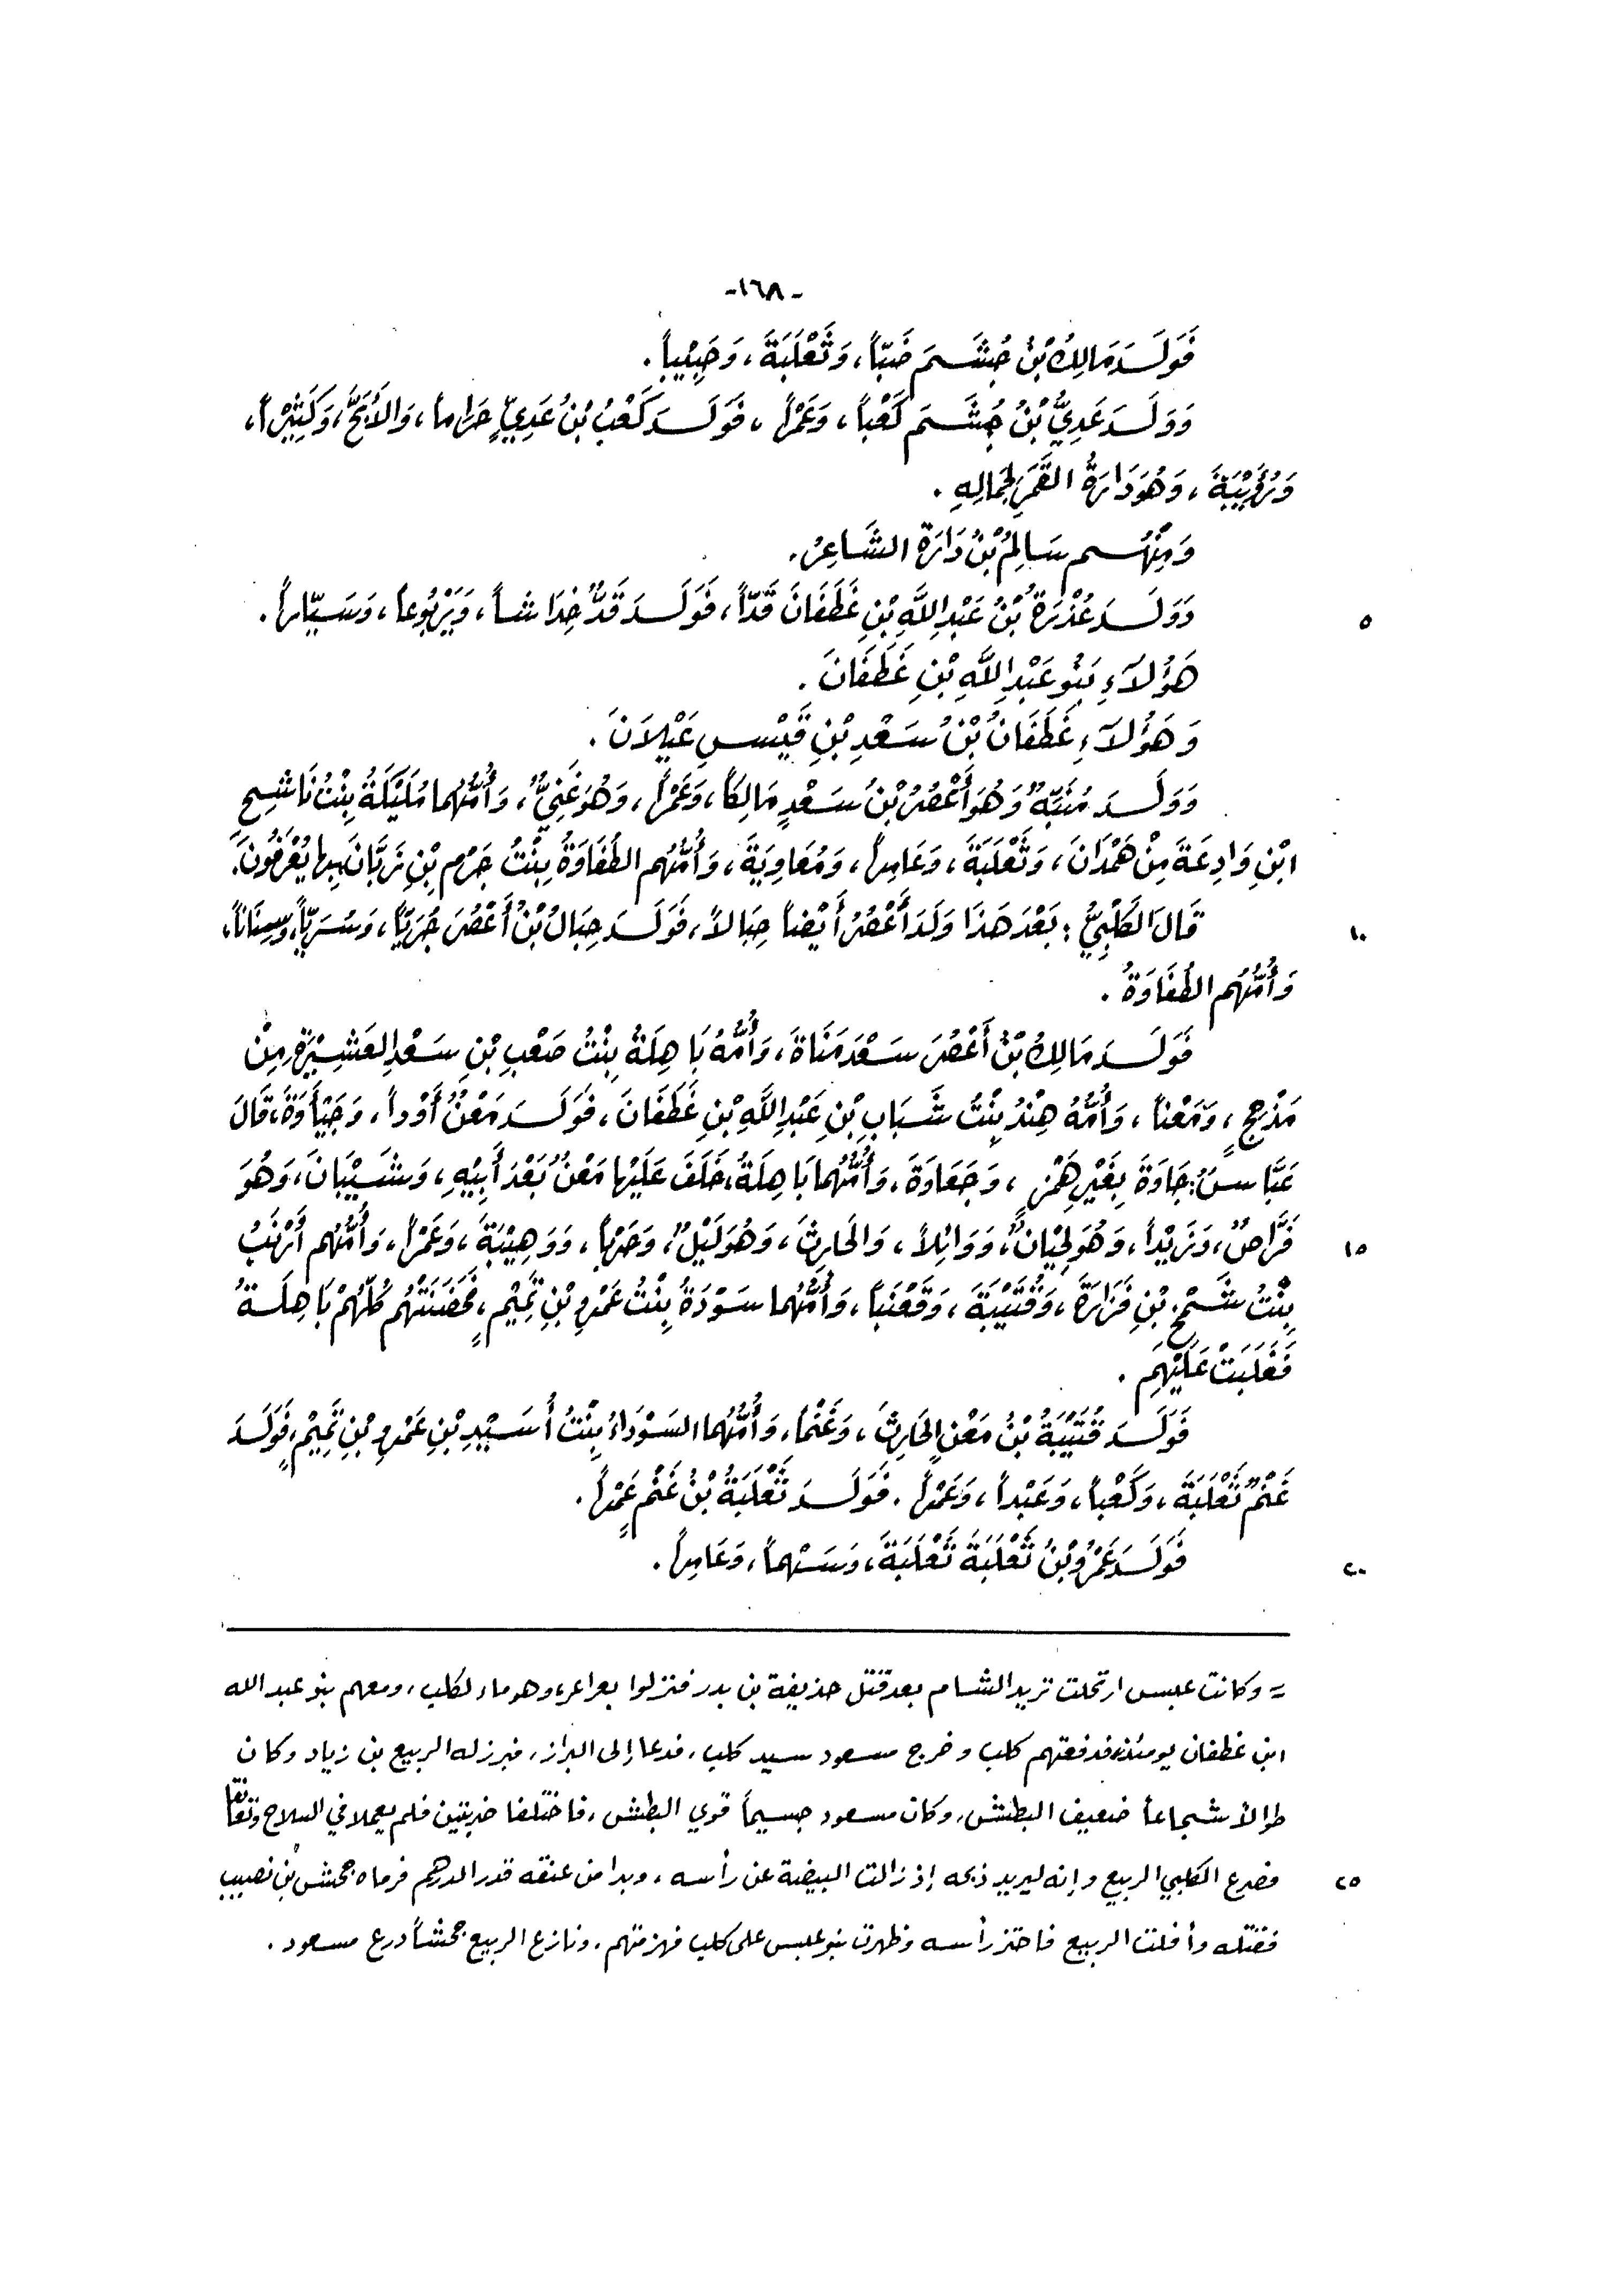 -١٦٨-
فَوَلَدَ مَالِكُ بْنُ جُشَمَ ضَبّاً، وَثَعْلَبَةَ، وَحَبِيْباً.
وَوَلَدَ عَدِيُّ بْنُ جُشَمَ كَعْباً، وَعَمْراً، فَوَلَدَ كَعْبُ بْنُ عَدِيٍّ حَرَاماً، وَالأَبَحَّ، وَكَثِيْراً،
وَرُؤَيْبَةَ، وَهُوَ دَارَةُ القَمَرِ لِجَمَالِهِ.
وَمِنْهُم سَالِمُ بْنُ دَارَةَ الشَّاعِرُ.
٥ وَوَلَدَ عُذْرَةُ بْنُ عَبْدِ اللَّهِ بْنِ غَطَفَانَ قَدّاً، فَوَلَدَ قَدٌّ خِدَاشاً، وَيَرْبُوعاً، وَسَيّاراً.
هَؤُلَآءِ بَنُو عَبْدِ اللَّهِ بْنِ غَطَفَانَ.
وَهَؤُلَآءِ غَطَفَانُ بْنُ سَعْدِ بْنِ قَيْسِ عَيْلَانَ.
وَوَلَدَ مُنَبِّهٌ وَهُوَ أَعْصُرُ بْنُ سَعْدٍ مَالِكاً، وَعَمْراً، وَهُوَ غَنِيٌّ، وَأُمُّهُمَا مُلَيْكَةُ بِنْتُ نَاشِحِ
ابْنِ وَادِعَةَ مِنْ هَمْدَانَ، وَثَعْلَبَةَ، وَعَامِراً، وَمُعَاوِيَةَ، وَأُمُّهُم الطُفَاوَةُ بِنْتُ جَرْمِ بْنِ رَبَّانَ بِهَا يُعْرَفُونَ.
١٠ قَالَ الكَلْبِيُّ: بَعْدَ هَذَا وَلَدَ أَعْصُرُ أَيْضاً حِبَالاً، فَوَلَدَ حِبَالُ بْنُ أَعْصُرَ جُرَيّاً، وَسُرَيّاً، وَسِنَاناً،
وَأُمُّهُم الطُفَاوَةُ.
فَوَلَدَ مَالِكُ بْنُ أَعْصُرَ سَعْدَ مَنَاةَ، وَأُمُّهُ بَاهِلَةُ بِنْتُ صَعْبِ بْنِ سَعْدِ العَشِيْرَةِ مِنْ
مَذْحِجٍ، وَمَعْناً، وَأُمُّهُ هِنْدُ بِنْتُ شَبَابِ بْنِ عَبْدِ اللَّهِ بْنِ غَطَفَانَ، فَوَلَدَ مَعْنٌ أَوْداً، وَجَيْأَوَةَ، قَالَ
عَبَّاسٌ: جَاوَةَ بِغَيْرِ هَمْزٍ، وَجَعَاوَةَ، وَأُمُّهُمَا بَاهِلَةُ، خَلَفَ عَلَيْهَا مَعْنٌ بَعْدَ أَبِيْهِ، وَشَيْبَانَ، وَهُوَ
١٥ فَرَّاصٌ، وَزَيْداً، وَهُوَ لِحْيَانٌ، وَوَائِلاً، وَالحَارِثَ، وَهُوَ لَيْلٌ، وَحَرْباً، وَوَهِيْبَةَ، وَعَمْراً، وَأُمُّهُم أَرْنَبُ
بِنْتُ شَمْخِ بْنِ فَزَارَةَ، وَقُتَيْبَةَ، وَقَعْنَباً، وَأُمُّهُمَا سَوْدَةُ بِنْتُ عَمْرِو بْنِ تَمِيْمٍ، فَحَضَنَتْهُم كُلَّهُمْ بَاهِلَةُ
فَغَلَبَتْ عَلَيْهِم.
فَوَلَدَ قُتَيْبَةُ بْنُ مَعْنٍ الحَارِثَ، وَغَنْماً، وَأُمُّهُمَا السَوْدَاءُ بِنْتُ أُسَيِّدِ بْنِ عَمْرِو بْنِ تَمِيْمٍ، فَوَلَدَ
غَنْمٌ ثَعْلَبَةَ، وَكَعْباً، وَعَبْداً، وَعَمْراً. فَوَلَدَ ثَعْلَبَةُ بْنُ غَنْمٍ عَمْراً.
٢٠ فَوَلَدَ عَمْرُو بْنُ ثَعْلَبَةَ ثَعْلَبَةَ، وَسَهْماً، وَعَامِراً.
= وكانت عبس ارتحلت تريد الشام بعد قتل حذيفة بن بدر فنزلوا بعراعر، وهو ماء لكلب، ومعهم بنو عبد الله
ابن غطفان يومئذ، فدفعتهم كلب وخرج مسعود سيد كلب، فدعا إلى البراز، فبرز له الربيع بن زياد وكان
طوالاً شجاعاً ضعيف البطش، وكان مسعود جسيماً قوي البطش، فاختلفا ضربتين فلم يعملا في السلاح وتعانقا
٢٥ فصرع الكلبي الربيع وإنه ليريد ذبحه إذ زالت البيضة عن رأسه، وبدا من عنقه قدر الدرهم فرماه جحش بن نصيب
فقتله وأفلت الربيع فاحتز رأسه وظهرت بنو عبس على كلب فهزمتهم. ونازع الربيع جحشاً درع مسعود.